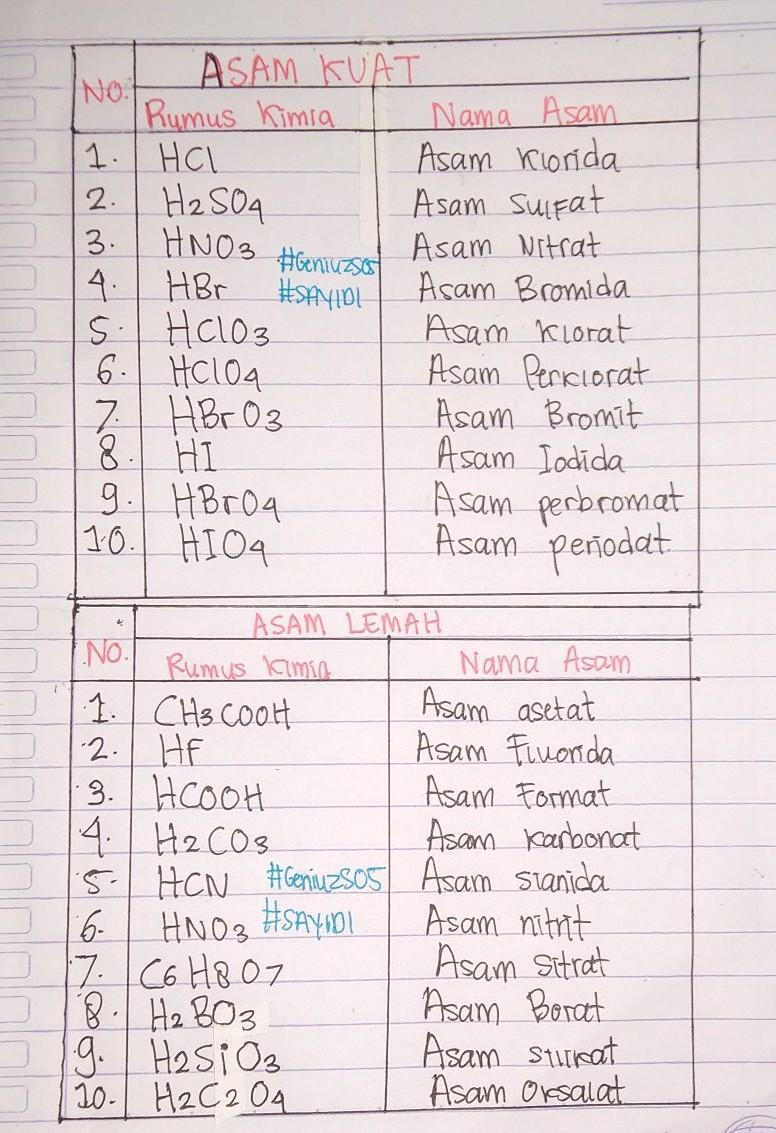 NO. ASAM KUAT
Rumus Kimia Nama Asam
1. HCl Asam Klorida
2. H2SO4 Asam Sulfat
3. HNO3 Asam Nitrat
#GeniuzS05
4. HBr Asam Bromida
#SAYIDI
5. HClO3 Asam Klorat
6. HClO4 Asam Perklorat
7. HBrO3 Asam Bromit
8. HI Asam Iodida
9. HBrO4 Asam perbromat
10. HIO4 Asam periodat
NO. ASAM LEMAH
Rumus Kimia Nama Asam
1. CH3COOH Asam asetat
2. HF Asam Fluorida
3. HCOOH Asam Format
4. H2CO3 Asam Karbonat
5. HCN #GeniuzS05 Asam sianida
6. HNO3 #SAYIDI Asam nitrit
7. C6H8O7 Asam Sitrat
8. H2BO3 Asam Borat
9. H2SiO3 Asam silikat
10. H2C2O4 Asam Oksalat